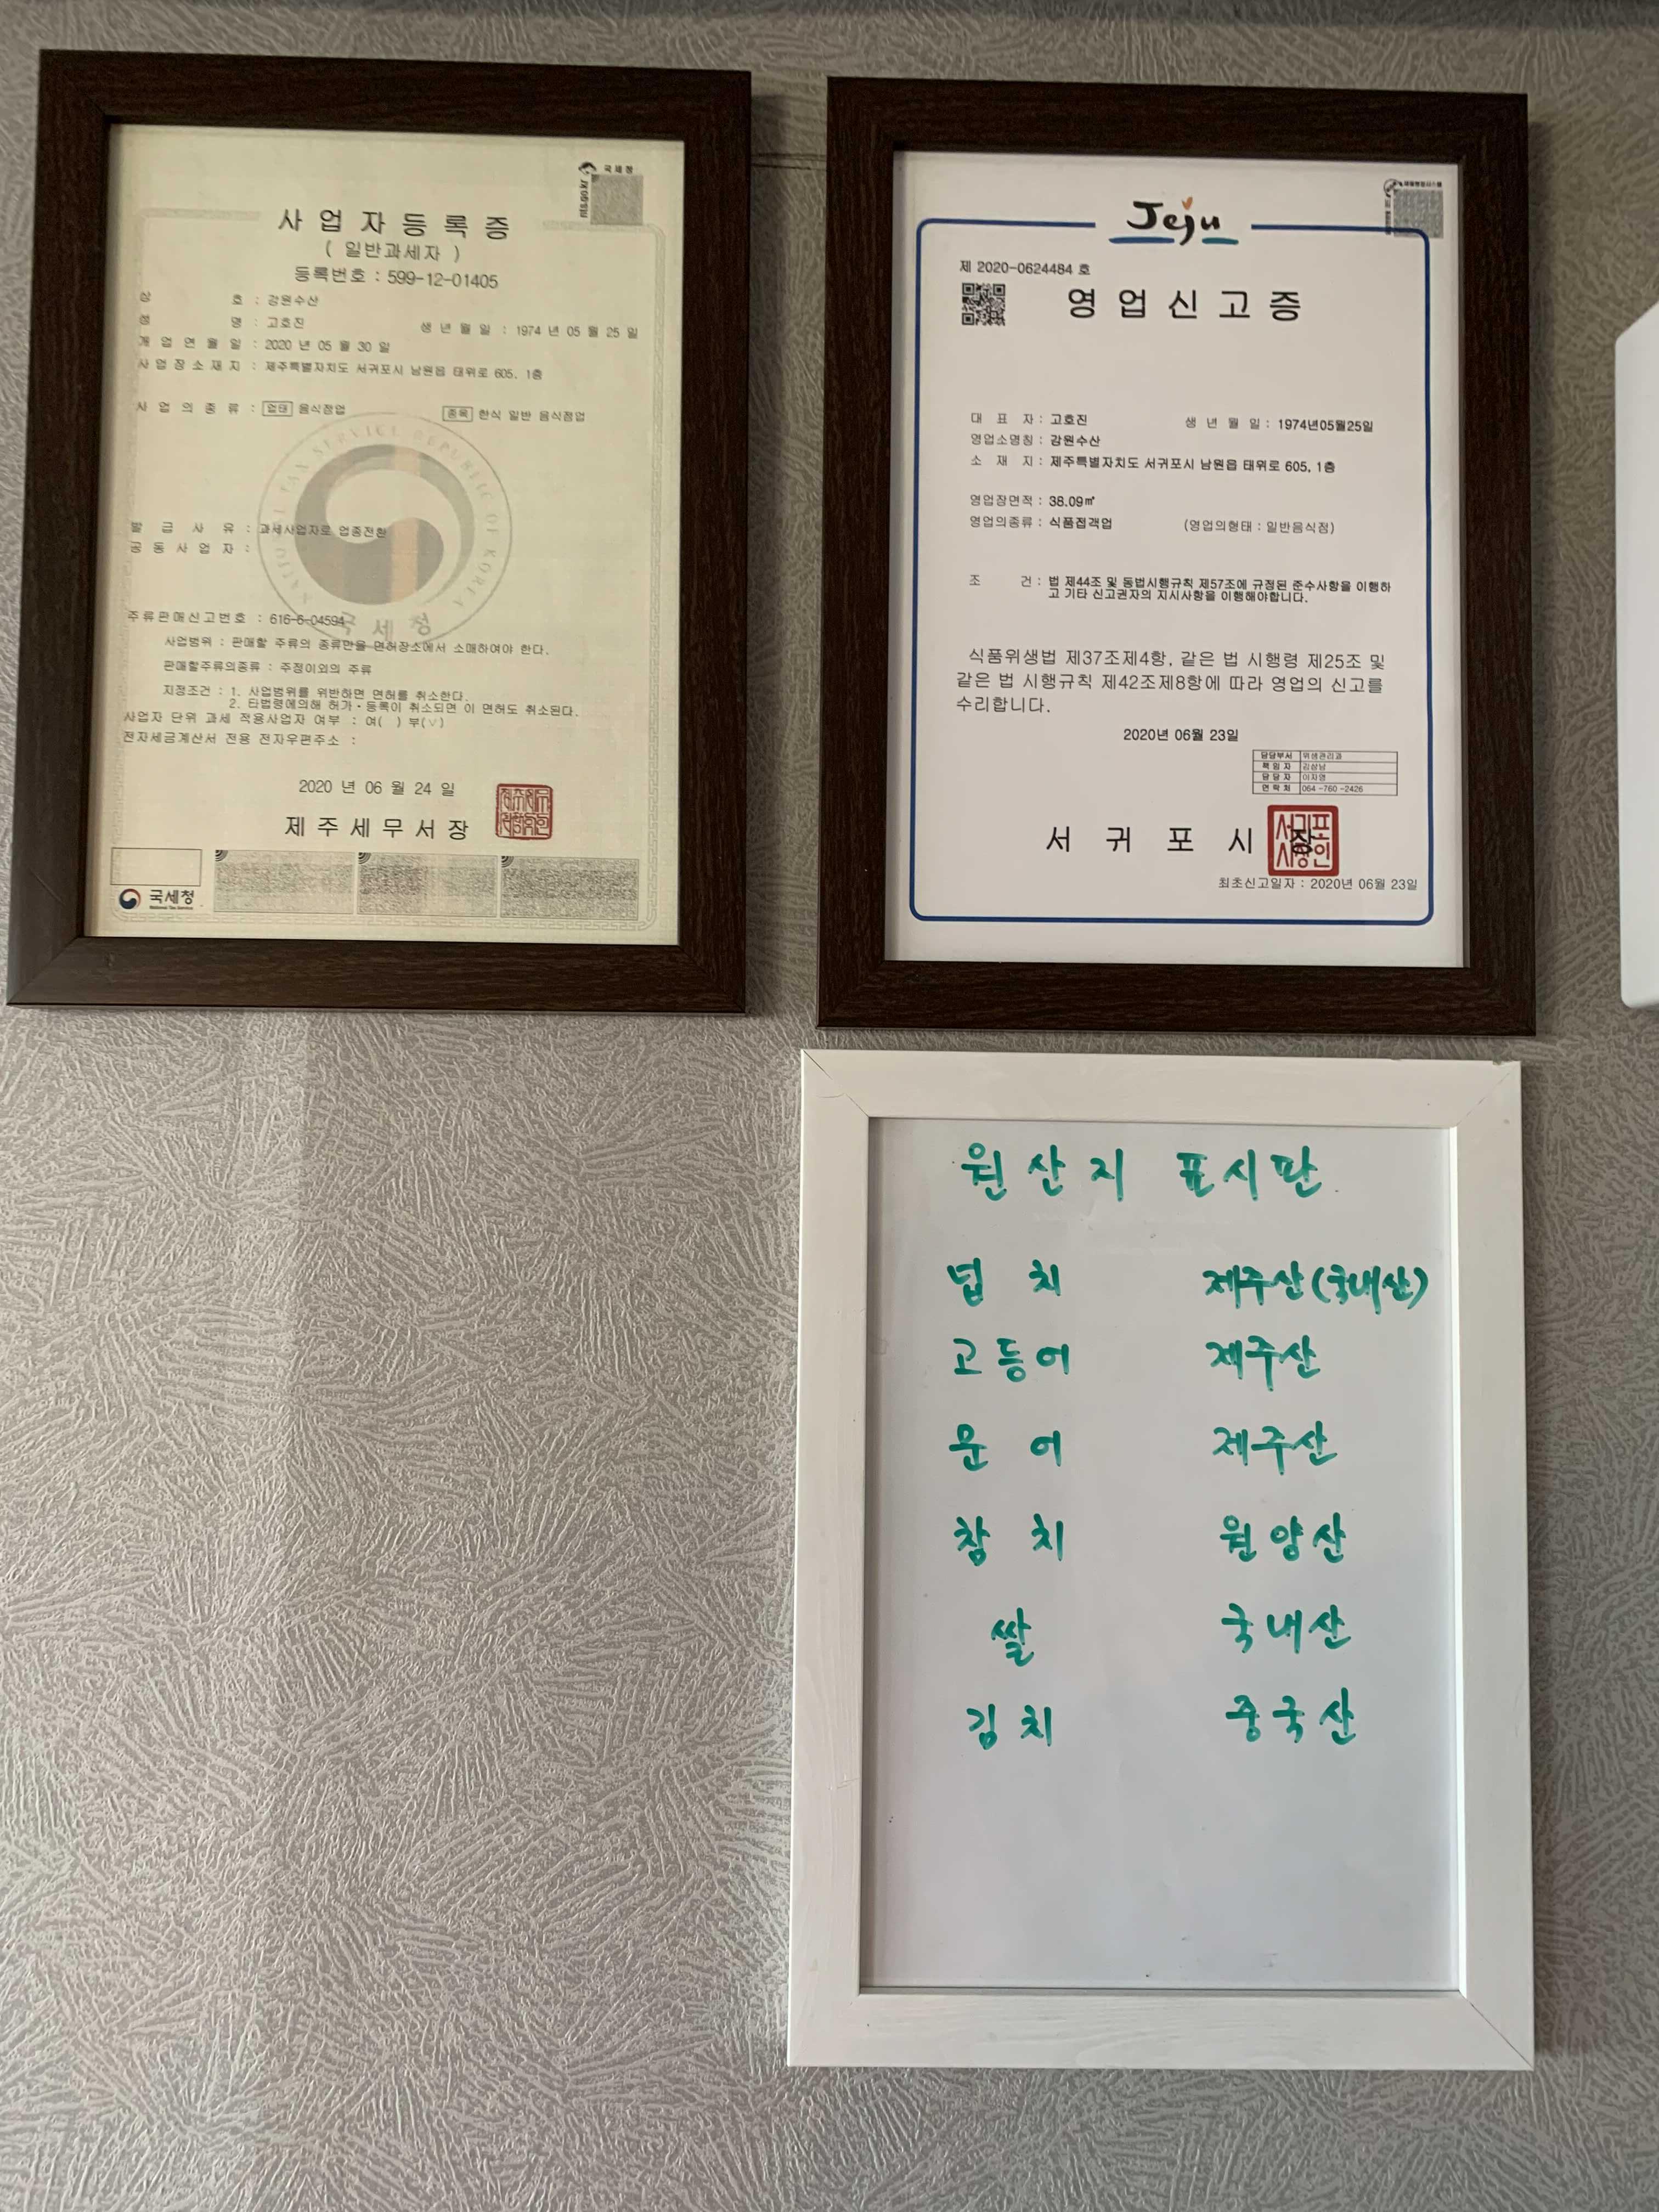 국세청
nts.go.kr
사업자등록증
( 일반과세자 )
등록번호 : 599-12-01405
상 호 : 강원수산
성 명 : 고호진 생 년 월 일 : 1974 년 05 월 25 일
개 업 연 월 일 : 2020 년 05 월 30 일
사 업 장 소 재 지 : 제주특별자치도 서귀포시 남원읍 태위로 605, 1층
사 업 의 종 류 : 업태 음식점업 종목 한식 일반 음식점업
발 급 사 유 : 과세사업자로 업종전환
공 동 사 업 자 :
주류판매신고번호 : 616-6-04594
사업범위 : 판매할 주류의 종류만을 면허장소에서 소매하여야 한다.
판매할주류의종류 : 주정이외의 주류
지정조건 : 1. 사업범위를 위반하면 면허를 취소한다.
2. 타법령에의해 허가·등록이 취소되면 이 면허도 취소된다.
사업자 단위 과세 적용사업자 여부 : 여( ) 부(∨)
전자세금계산서 전용 전자우편주소 :
2020 년 06 월 24 일
제주세무서장
국세청
National Tax Service
NATIONAL TAX SERVICE REPUBLIC OF KOREA
국세청
Jeju
제 2020-0624484 호
영업신고증
대 표 자 : 고호진 생 년 월 일 : 1974년05월25일
영업소명칭 : 강원수산
소 재 지 : 제주특별자치도 서귀포시 남원읍 태위로 605, 1층
영업장면적 : 38.09㎡
영업의종류 : 식품접객업 (영업의형태 : 일반음식점)
조 건 : 법 제44조 및 동법시행규칙 제57조에 규정된 준수사항을 이행하
고 기타 신고권자의 지시사항을 이행해야합니다.
식품위생법 제37조제4항, 같은 법 시행령 제25조 및
같은 법 시행규칙 제42조제8항에 따라 영업의 신고를
수리합니다.
2020년 06월 23일
담당부서 위생관리과
책 임 자 김삼남
담 당 자 이지영
연 락 처 064 -760 -2426
서 귀 포 시 장
서귀포
시장인
최초신고일자 : 2020년 06월 23일
원산지 표시판
넙 치 제주산(국내산)
고등어 제주산
문 어 제주산
참 치 원양산
쌀 국내산
김치 중국산